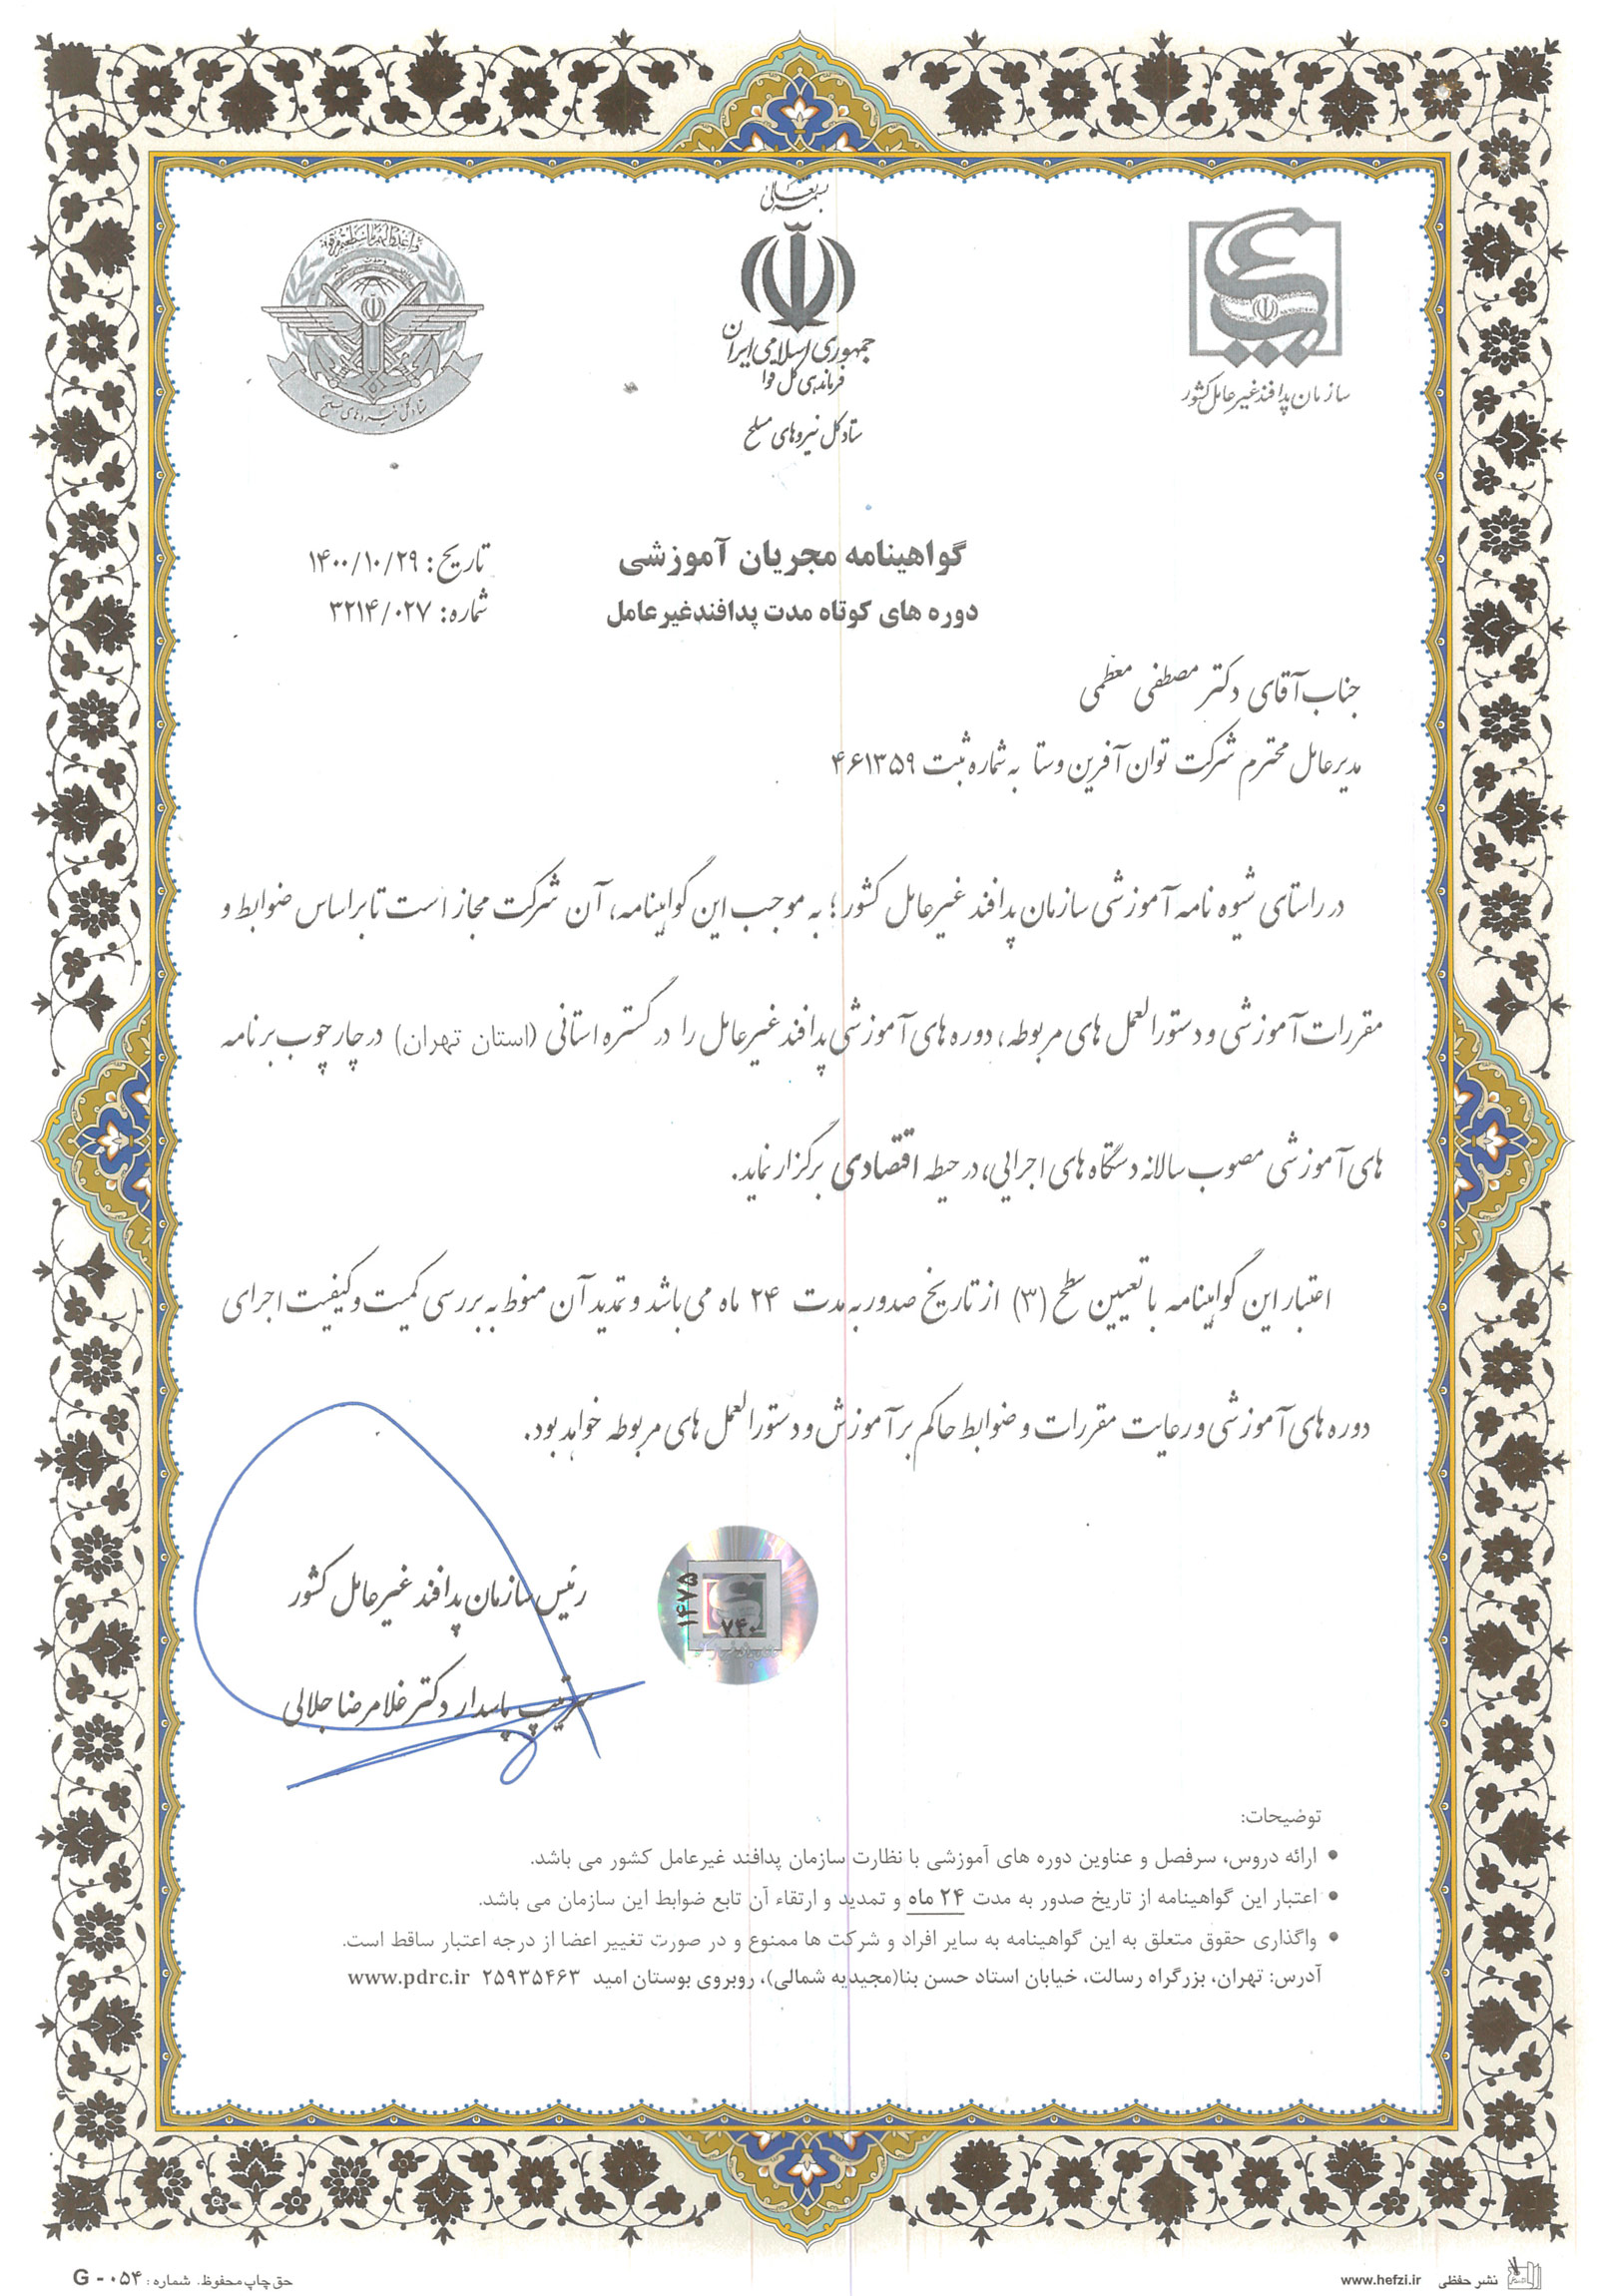 بسمه تعالی
جمهوری اسلامی ایران
فرماندهی کل قوا
ستاد کل نیروهای مسلح
سازمان پدافند غیرعامل کشور
ستاد کل نیروهای مسلح
گواهینامه مجریان آموزشی
دوره های کوتاه مدت پدافندغیرعامل
تاریخ: ۱۴۰۰/۱۰/۲۹
شماره: ۳۲۱۴/۰۲۷
جناب آقای دکتر مصطفی معظمی
مدیرعامل محترم شرکت توان آفرین وستا به شماره ثبت ۴۶۱۳۵۹
در راستای شیوه نامه آموزشی سازمان پدافند غیرعامل کشور؛ به موجب این گواهینامه، آن شرکت مجاز است تا براساس ضوابط و
مقررات آموزشی و دستورالعمل های مربوطه، دوره های آموزشی پدافند غیرعامل را در گستره استانی (استان تهران) در چارچوب برنامه
های آموزشی مصوب سالانه دستگاه های اجرایی، در حیطه اقتصادی برگزار نماید.
اعتبار این گواهینامه با تعیین سطح (۳) از تاریخ صدور به مدت ۲۴ ماه می باشد و تمدید آن منوط به بررسی کمیت و کیفیت اجرای
دوره های آموزشی و رعایت مقررات و ضوابط حاکم بر آموزش و دستورالعمل های مربوطه خواهد بود.
رئیس سازمان پدافند غیرعامل کشور
سرتیپ پاسدار دکتر غلامرضا جلالی
۱۴۷۵
۷۴۰
توضیحات:
• ارائه دروس، سرفصل و عناوین دوره های آموزشی با نظارت سازمان پدافند غیرعامل کشور می باشد.
• اعتبار این گواهینامه از تاریخ صدور به مدت ۲۴ ماه و تمدید و ارتقاء آن تابع ضوابط این سازمان می باشد.
• واگذاری حقوق متعلق به این گواهینامه به سایر افراد و شرکت ها ممنوع و در صورت تغییر اعضا از درجه اعتبار ساقط است.
آدرس: تهران، بزرگراه رسالت، خیابان استاد حسن بنا(مجیدیه شمالی)، روبروی بوستان امید ۲۵۹۳۵۴۶۳ www.pdrc.ir
نشر حفظی www.hefzi.ir
حق چاپ محفوظ. شماره: G - ۰۵۴